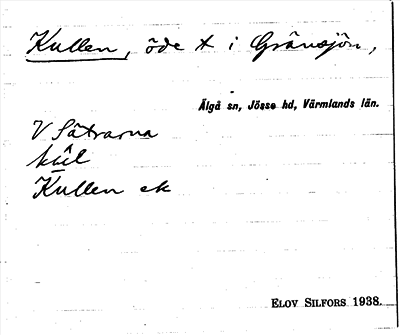 Kullen, öde x i Gränsjön,
Älgå sn, Jösse hd, Värmlands län.
V Sätrarna
kul
Kullen ek
ELOV SILFORS 1938.